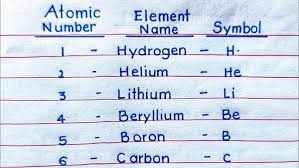 Atomic Number Element Name Symbol
1 - Hydrogen - H.
2 - Helium - He
3 - Lithium - Li
4 - Beryllium - Be
5 - Boron - B
6 - Carbon - C